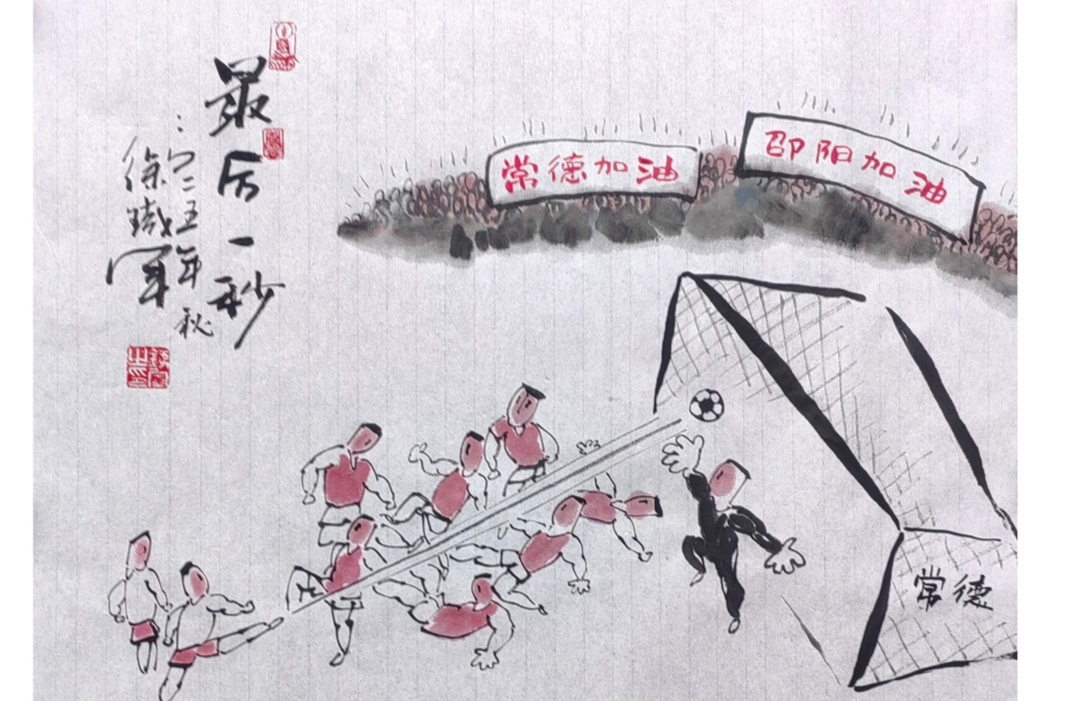 最后一秒
二〇二五年秋
徐 军
常德加油
邵阳加油
常德